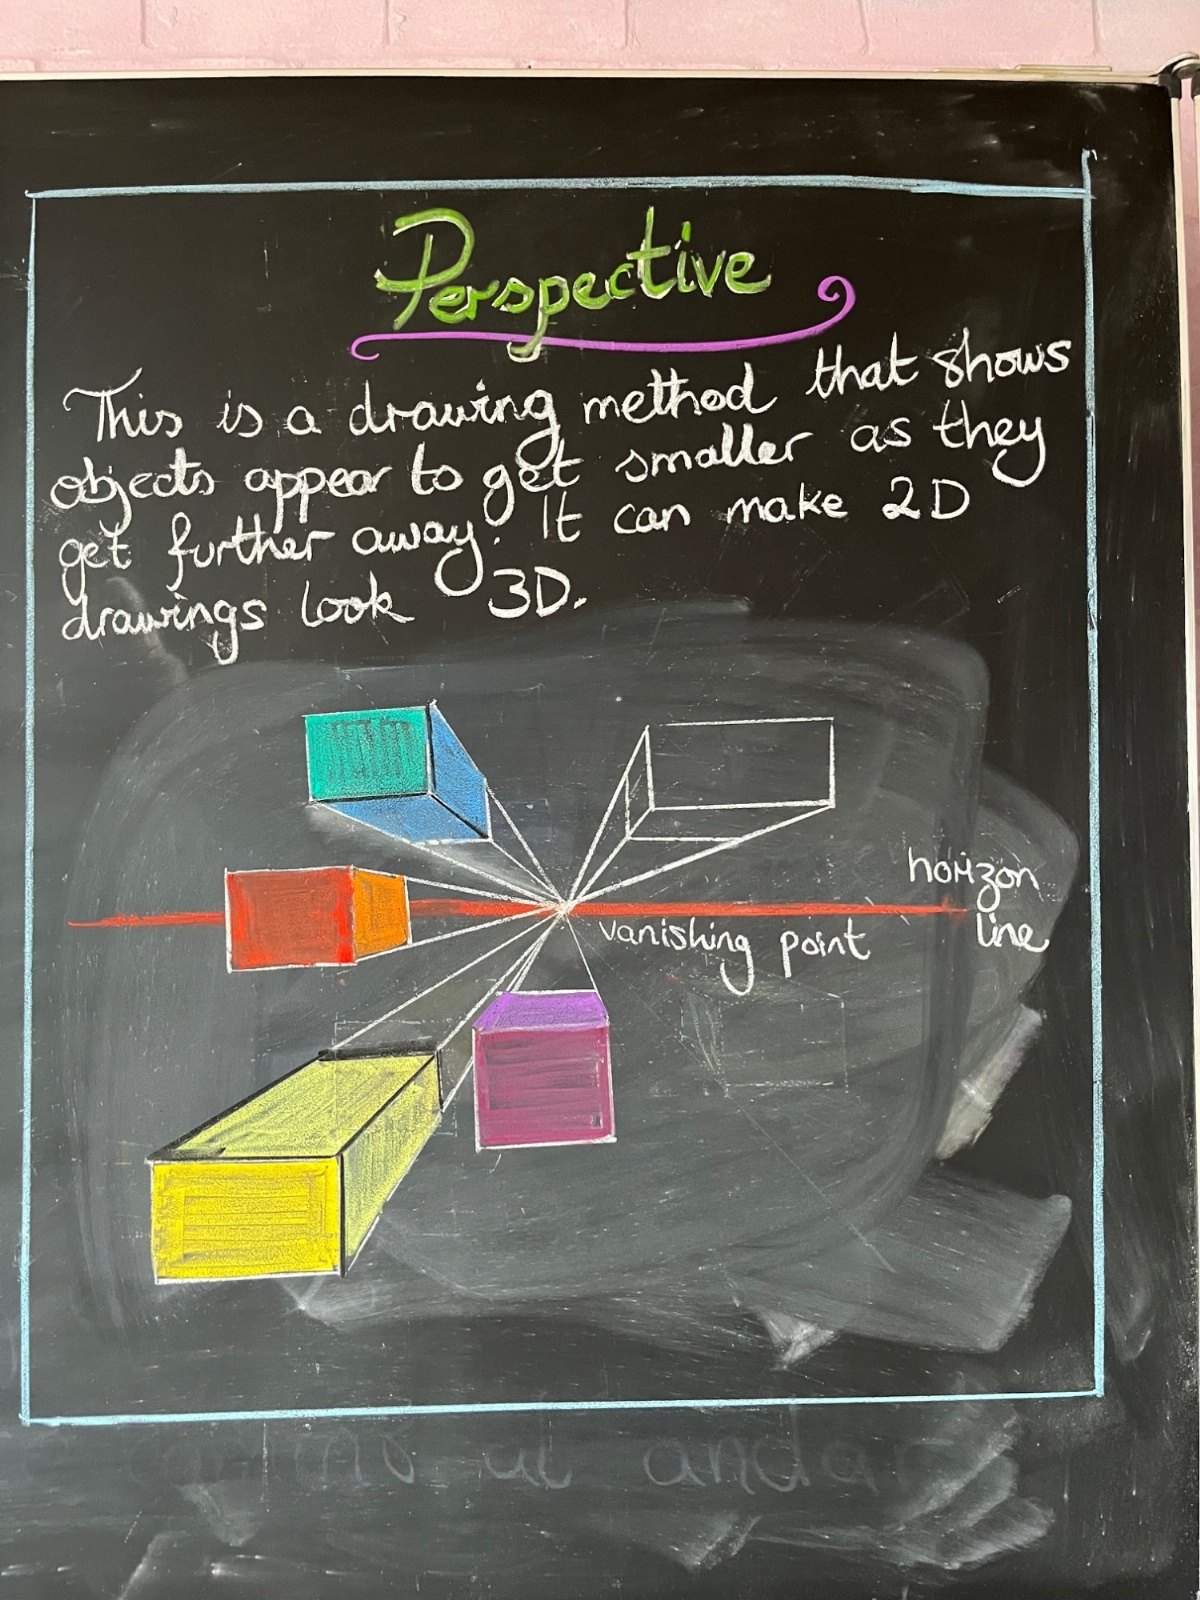 Perspective
This is a drawing method that shows
objects appear to get smaller as they
get further away. It can make 2D
drawings look 3D.
horizon
line
vanishing point